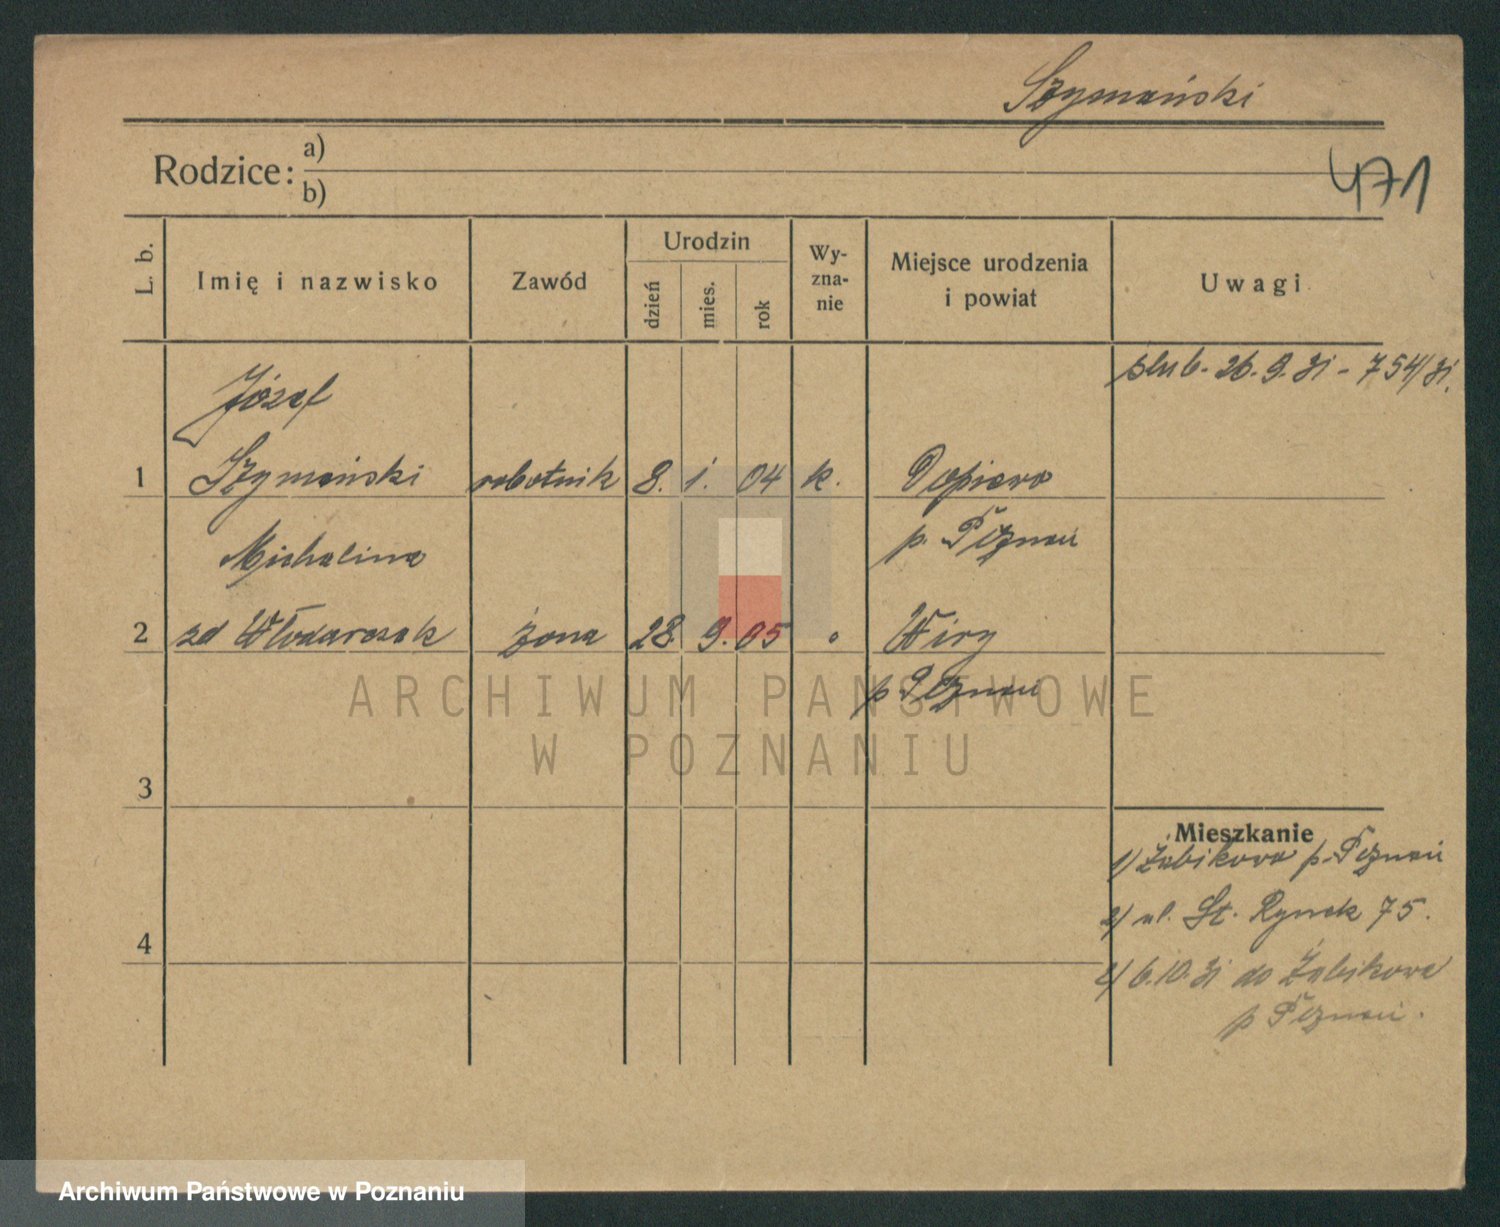 Szymański
Rodzice: a)
b)
471
L. b.
Imię i nazwisko
Zawód
Urodzin
dzień
mies.
rok
Wy-
zna-
nie
Miejsce urodzenia
i powiat
Uwagi
ślub. 26.9.31 - 754/31.
Józef
1 Szymański robotnik 8. 1. 04 k. Dopiewo
p. Poznań
Michalina
2 zd Włodarczak żona 28. 9. 05 " Wiry
p Poznań
ARCHIWUM PAŃSTWOWE
W POZNANIU
3
Mieszkanie
1) Żabikowo p. Poznań
2) ul. St. Rynek 75.
4
2) 6.10.31 do Żabikowa
p Poznań.
Archiwum Państwowe w Poznaniu